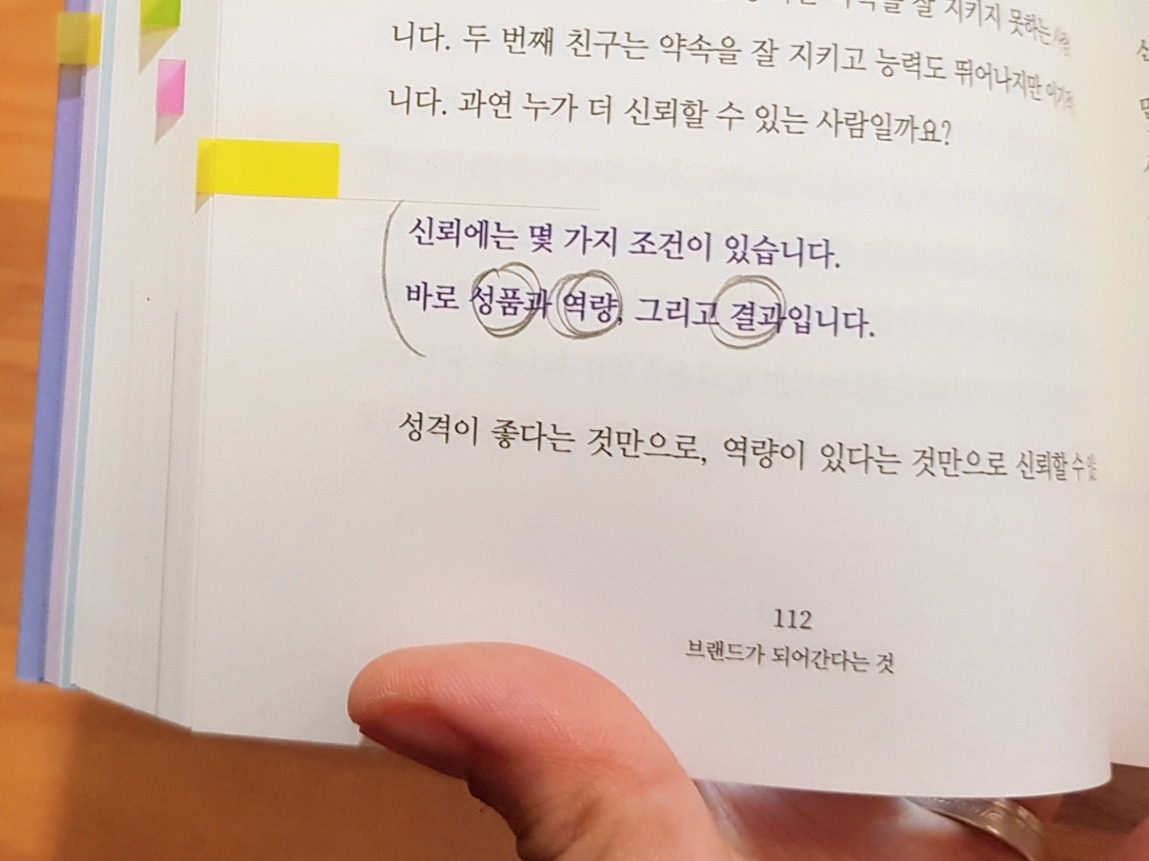 잘 지키지 못하는
니다. 두 번째 친구는 약속을 잘 지키고 능력도 뛰어나지만
니다. 과연 누가 더 신뢰할 수 있는 사람일까요?
신뢰에는 몇 가지 조건이 있습니다.
바로 성품과 역량, 그리고 결과입니다.
성격이 좋다는 것만으로, 역량이 있다는 것만으로 신뢰할 수
112
브랜드가 되어간다는 것